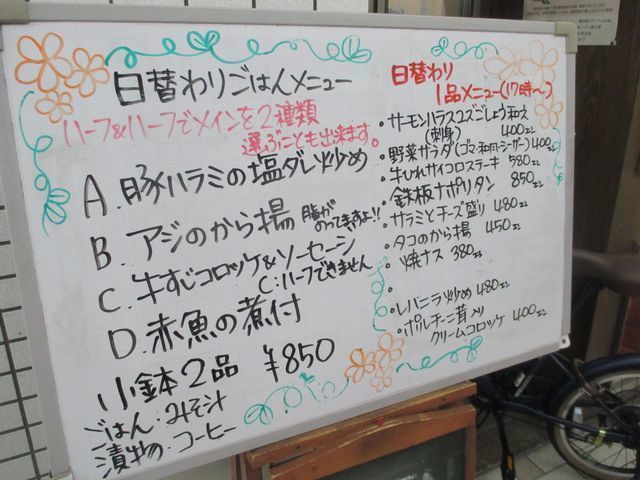 日替わりごはんメニュー
ハーフ&ハーフでメインを2種類
選ぶことも出来ます。
A.豚ハラミの塩ダレ炒め
B.アジのから揚 脂が
のってますよ!!
C.牛すじコロッケ&ソーセージ
C:ハーフできません
D.赤魚の煮付
小鉢2品 ¥850
ごはん・みそ汁
漬物・コーヒー
日替わり
1品メニュー(17時〜)
・サーモンハラスユズごしょう和え
(刺身) 400
・野菜サラダ(ゴマ・和風・シーザー)400
・牛ひれサイコロステーキ 580
・鉄板ナポリタン 850
・サラミとチーズ盛り 480
・タコのから揚 450
・焼ナス 380
・
・レバニラ炒め 480
・ポルチーニ茸入り
クリームコロッケ 400